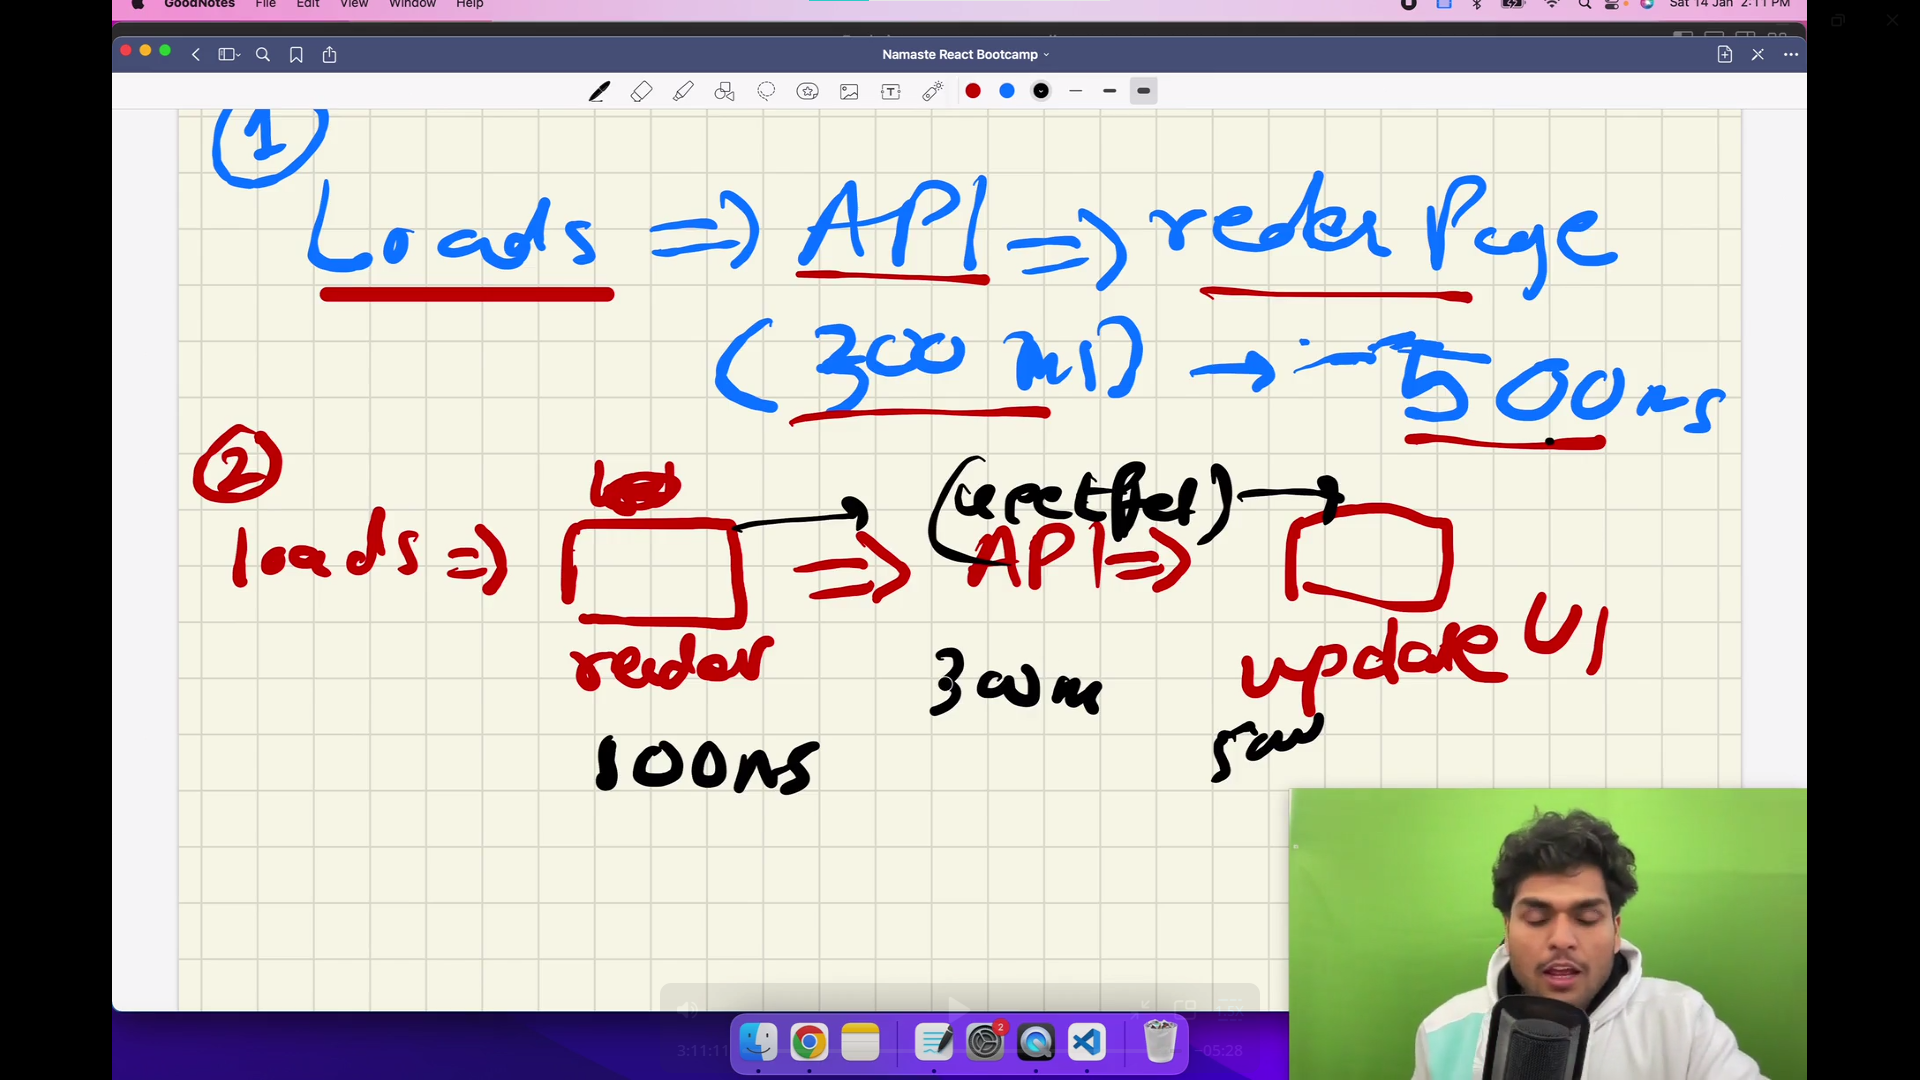 GoodNotes File Edit View Window Help Sat 14 Jan 2:11 PM
Namaste React Bootcamp
1
Loads => API => reder Page
(300 ms) → 500ms
2
loads => => API =>
render update UI
300m
100ms
2
3:11:11 -05:28